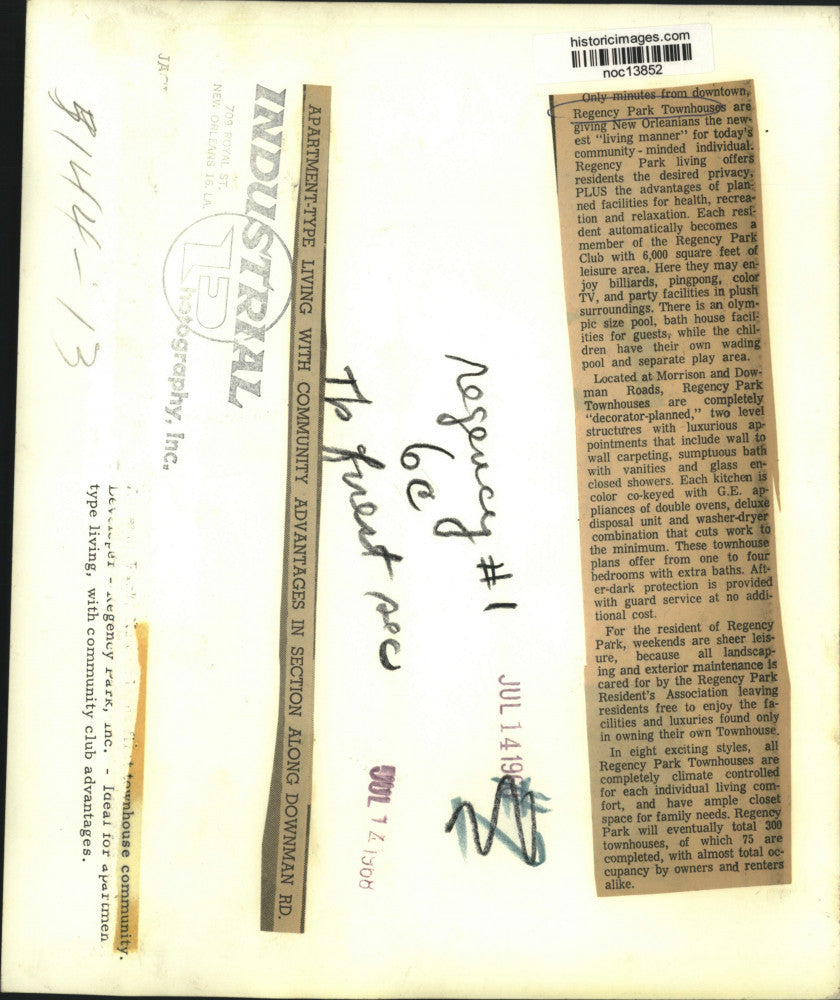 historicimages.com
noc13852
Only minutes from downtown,
Regency Park Townhouses are
giving New Orleanians the new-
est "living manner" for today's
community - minded individual.
Regency Park living offers
residents the desired privacy,
PLUS the advantages of plan-
ned facilities for health, recrea-
tion and relaxation. Each resi-
dent automatically becomes a
member of the Regency Park
Club with 6,000 square feet of
leisure area. Here they may en-
joy billiards, pingpong, color
TV, and party facilities in plush
surroundings. There is an olym-
pic size pool, bath house facil-
ities for guests, while the chil-
dren have their own wading
pool and separate play area.
Located at Morrison and Dow-
man Roads, Regency Park
Townhouses are completely
"decorator-planned," two level
structures with luxurious ap-
pointments that include wall to
wall carpeting, sumptuous bath
with vanities and glass en-
closed showers. Each kitchen is
color co-keyed with G.E. ap-
pliances of double ovens, deluxe
disposal unit and washer-dryer
combination that cuts work to
the minimum. These townhouse
plans offer from one to four
bedrooms with extra baths. Aft-
er-dark protection is provided
with guard service at no addi-
tional cost.
For the resident of Regency
Park, weekends are sheer leis-
ure, because all landscap-
ing and exterior maintenance is
cared for by the Regency Park
Resident's Association leaving
residents free to enjoy the fa-
cilities and luxuries found only
in owning their own Townhouse.
In eight exciting styles, all
Regency Park Townhouses are
completely climate controlled
for each individual living com-
fort, and have ample closet
space for family needs. Regency
Park will eventually total 300
townhouses, of which 75 are
completed, with almost total oc-
cupancy by owners and renters
alike.
JUL 14 19
Regency #1
6c
JUL 14 1968
APARTMENT-TYPE LIVING WITH COMMUNITY ADVANTAGES IN SECTION ALONG DOWNMAN RD.
INDUSTRIAL
Photography, Inc.
709 ROYAL ST.
NEW ORLEANS 16, LA.
townhouse community.
Developer - Regency Park, Inc. - Ideal for apartmen
type living, with community club advantages.
8144-13